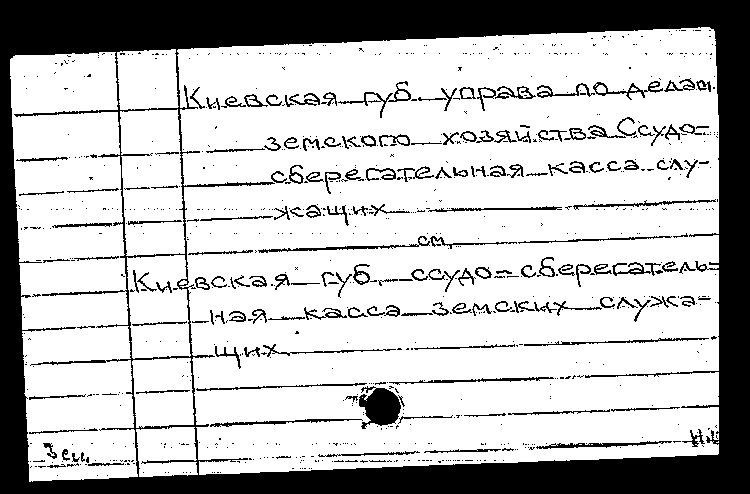 Киевская губ. управа по делам
земского хозяйства Ссудо=
сберегательная касса слу-
жащих
см.
Киевская губ. ссудо=сберегатель=
ная касса земских служа=
щих.
Зем.